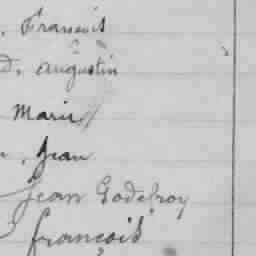 , François
D, Augustin
Marie
, Jean
Jean Godefroy
François